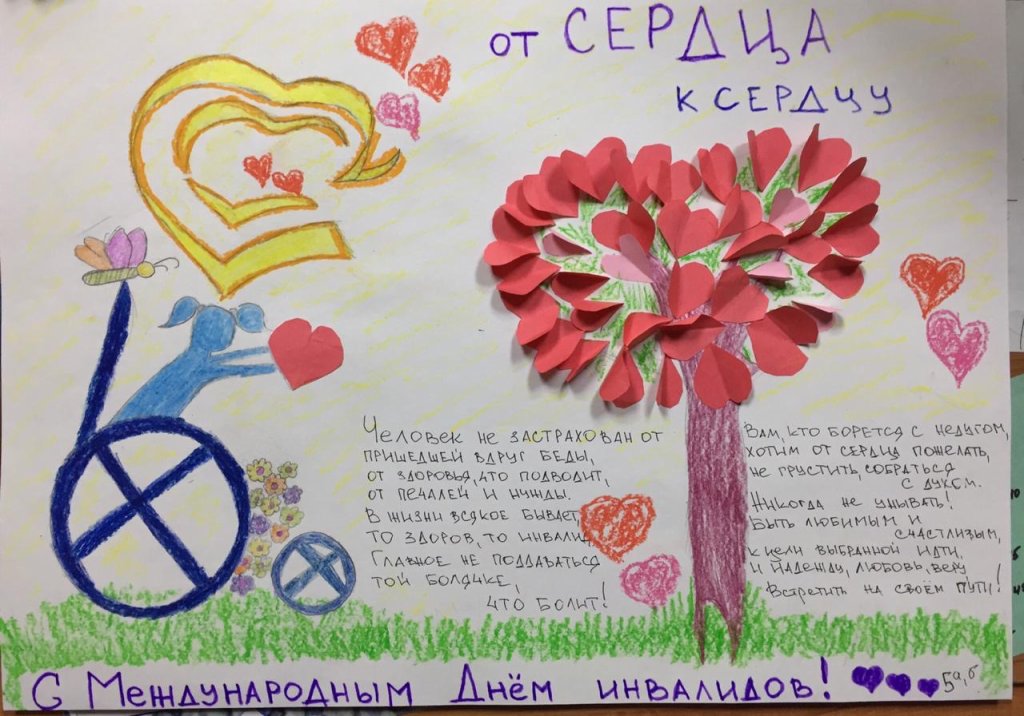 от СЕРДЦА
к СЕРДЦУ
Человек не застрахован от
пришедшей вдруг беды,
от здоровья, что подводит,
от печалей и нужды.
В жизни всякое бывает,
то здоров, то инвалид
Главное не поддаваться
той болячке,
что болит!
Вам, кто борется с недугом,
хотим от сердца пожелать,
не грустить, собраться
с духом.
Никогда не унывать!
Быть любимым и
счастливым,
к цели выбранной идти,
и надежду, любовь, веру
Встретить на своём пути!
С Международным Днём инвалидов!
5а,б